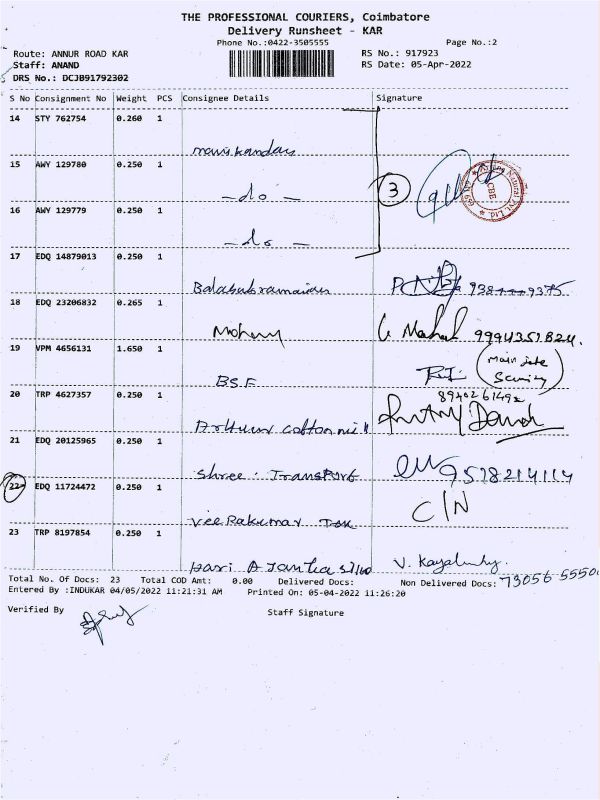 THE PROFESSIONAL COURIERS, Coimbatore
Delivery Runsheet - KAR
Phone No.:0422-3505555 Page No.:2
Route: ANNUR ROAD KAR RS No.: 917923
Staff: ANAND RS Date: 05-Apr-2022
DRS No.: DCJB91792302
S No Consignment No Weight PCS Consignee Details Signature
14 STY 762754 0.260 1
manikandan
15 AWY 129780 0.250 1
-do-
3
16 AWY 129779 0.250 1
-do-
17 EDQ 14879013 0.250 1
Balasubramaniam
18 EDQ 23206832 0.265 1
Mohan 9994351824.
19 VPM 4656131 1.650 1
BSF (main gate Security)
20 TRP 4627357 0.250 1 8940261492
cotton mill
21 EDQ 20125965 0.250 1
Shree. Transport 9578214114
22 EDQ 11724472 0.250 1
Veerakumar C/N
23 TRP 8197854 0.250 1
Hari Ajantha silks V.
Total No. Of Docs: 23 Total COD Amt: 0.00 Delivered Docs: Non Delivered Docs: 73056 5550
Entered By :INDUKAR 04/05/2022 11:21:31 AM Printed On: 05-04-2022 11:26:20
Verified By Staff Signature